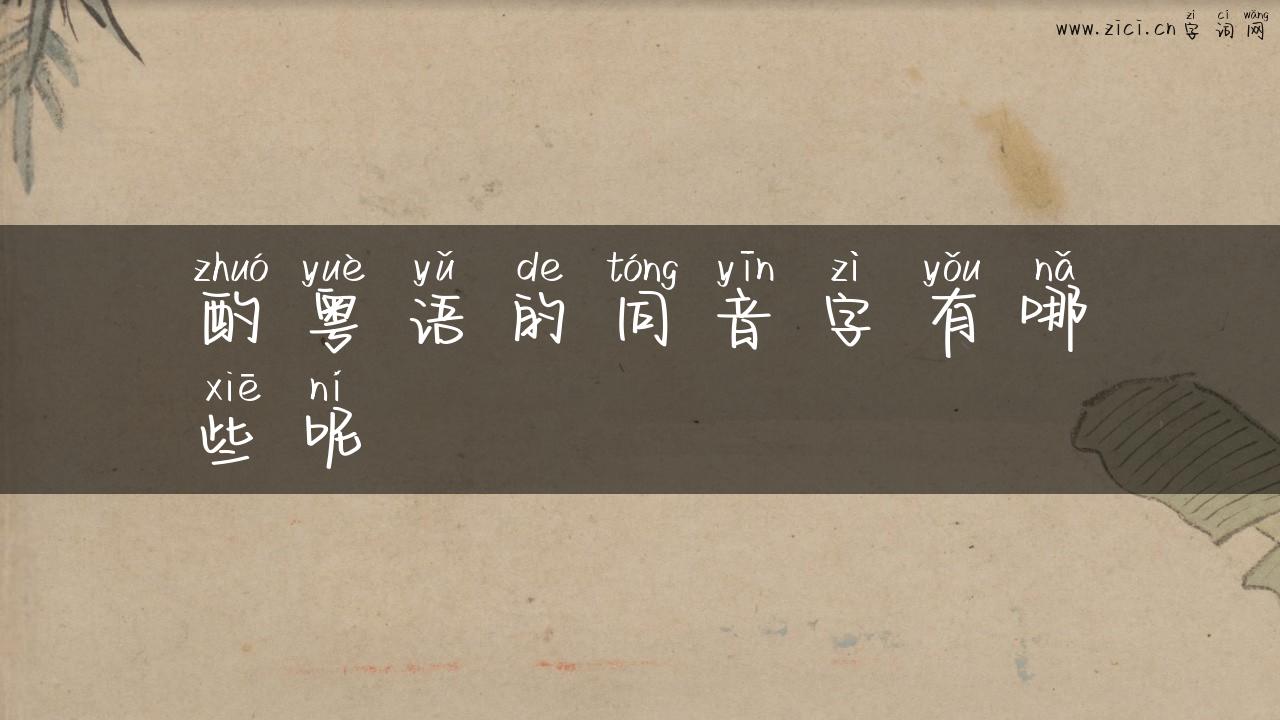 zì cí wǎng
www.zici.cn 字词网
zhuó yuè yǔ de tóng yīn zì yǒu nǎ
酌粤语的同音字有哪
xiē ní
些呢